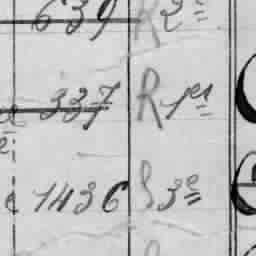 639 R 2e
337 R 1er
e 1436 S 3e